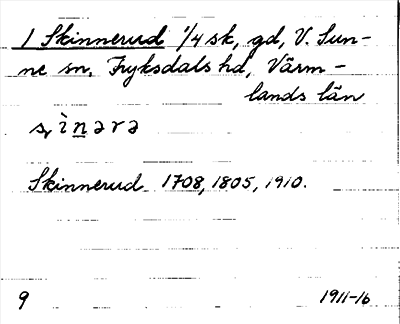 1 Skinnerud 1/4 sk, gd, V. Sun-
ne sn, Fryksdals hd, Värm-
lands län
Skinnerud 1708, 1805, 1910.
9 1911-16